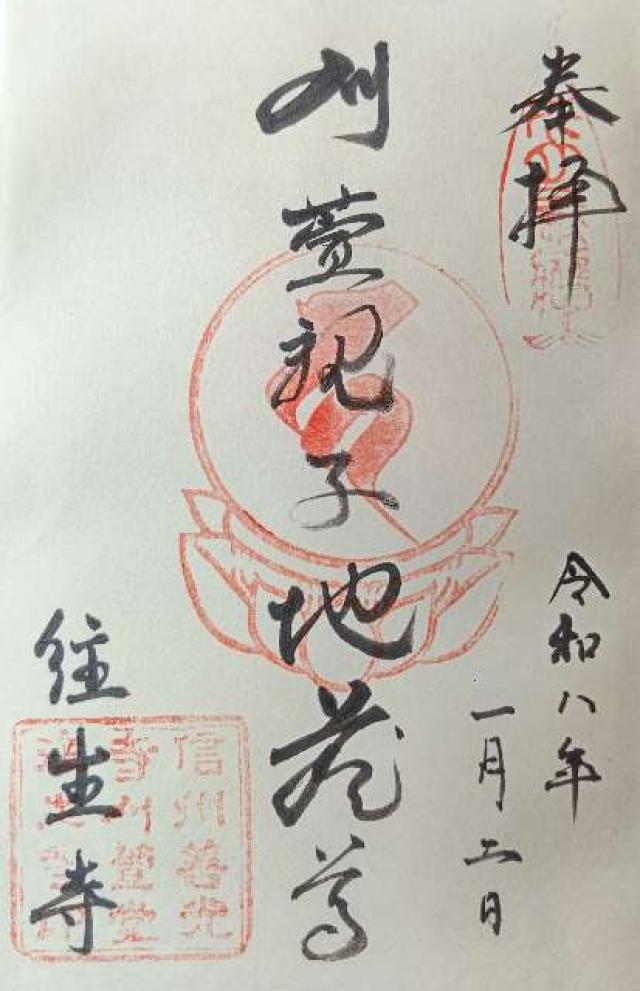 奉拝
令和八年
一月二日
刈萱親子地蔵尊
往生寺
信州善光
寺刈萱堂